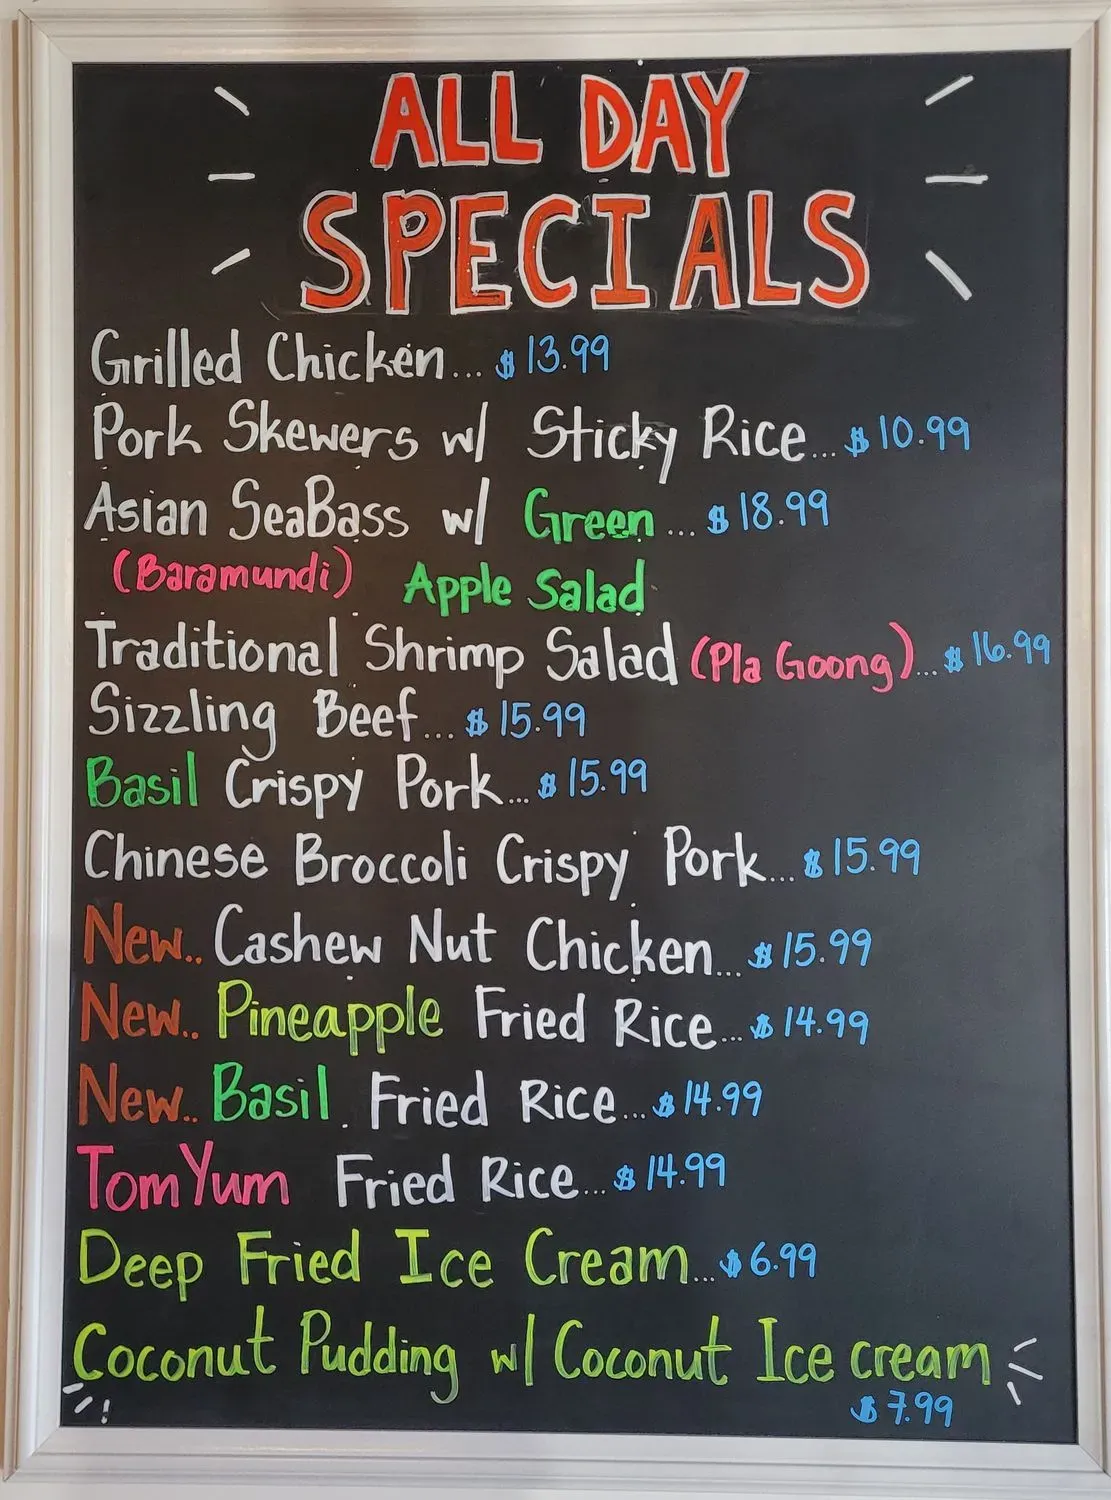 ALL DAY
SPECIALS
Grilled Chicken... $13.99
Pork Skewers w/ Sticky Rice... $10.99
Asian SeaBass w/ Green ... $18.99
(Baramundi) Apple Salad
Traditional Shrimp Salad (Pla Goong)... $16.99
Sizzling Beef... $15.99
Basil Crispy Pork... $15.99
Chinese Broccoli Crispy Pork... $15.99
New.. Cashew Nut Chicken... $15.99
New.. Pineapple Fried Rice... $14.99
New.. Basil Fried Rice... $14.99
Tom Yum Fried Rice... $14.99
Deep Fried Ice Cream... $6.99
Coconut Pudding w/ Coconut Ice cream
$7.99